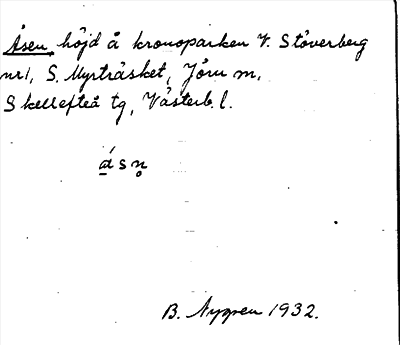 Åsen, höjd å kronoparken V. Stöverberg
nr 1, S. Myrträsket, Jörn m,
Skellefteå tg, Västerb. l.
á̱sn̥
B. Nygren 1932.